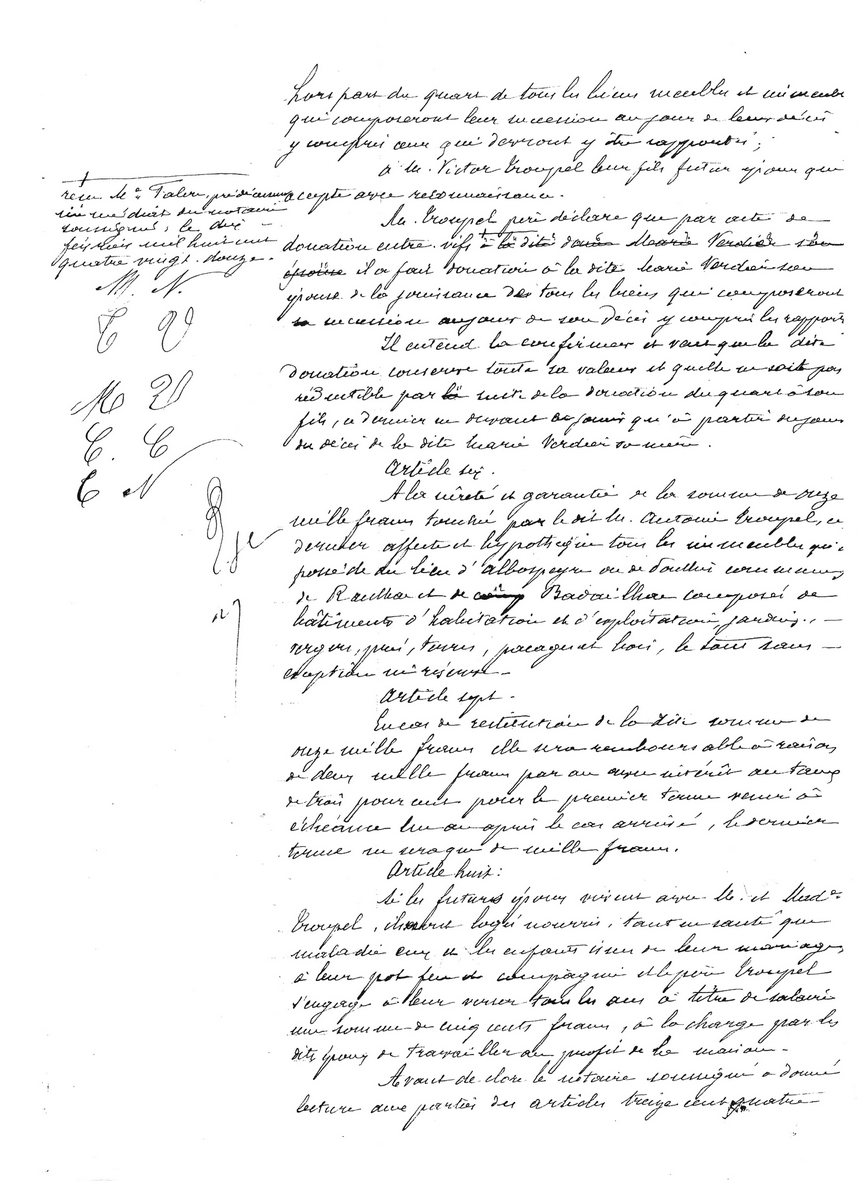 hors part du quart de tous les biens meubles et immeubles
qui composeront leur succession au jour de leurs décès
y compris ceux qui devront y être rapportés;
à M. Victor Troupel leur fils futur époux qui
accepte avec reconnaissance.
M. Troupel père déclare que par acte de
donation entre vifs à la dite dame Marie Verdier son
épouse il a fait donation à la dite Marie Verdier son
épouse de la jouissance de tous les biens qui composeront
sa succession au jour de son décès y compris les rapports
Il entend la confirmer et veut que la dite
donation conserve toute sa valeur et qu'elle ne soit pas
réductible par la suite de la donation du quart à son
fils, ce dernier ne devant en jouir qu'à partir du jour
du décès de la dite Marie Verdier sa mère.
Article six.
A la sûreté et garantie de la somme de onze
mille francs touchée par le dit M. Antoine Troupel, ce
dernier affecte et hypothèque tous les immeubles qu'il
possède au lieu d'Albospeyre ou de Doulhac communes
de Raulhac et de Badailhac composés de
bâtiments d'habitation et d'exploitation, jardins, -
vergers, prés, terres, pacages et bois, le tout sans -
exception ni réserve -
Article sept.
En cas de restitution de la dite somme de
onze mille francs elle sera remboursable à raison
de deux mille francs par an avec intérêt au taux
de trois pour cent pour le premier terme venir à
échéance un an après le cas arrivé, le dernier
terme ne sera que de mille francs.
Article huit:
Si les futurs époux vivent avec M. et Made
Troupel, ils seront logés nourris, tant en santé que
maladie eux et les enfants issus de leur mariage,
à leur pot feu et compagnie et le père Troupel
s'engage à leur verser tous les ans à titre de salaire
une somme de cinq cents francs, à la charge par les
dits époux de travailler au profit de la maison -
Avant de clore le notaire soussigné a donné
lecture aux parties des articles treize cent quatre -
reçu Me Falcre, prédécesseur
immédiat du notaire
soussigné, le dix -
février mil huit cent
quatre vingt douze -
M. N.
T V
M V
C. C
C N